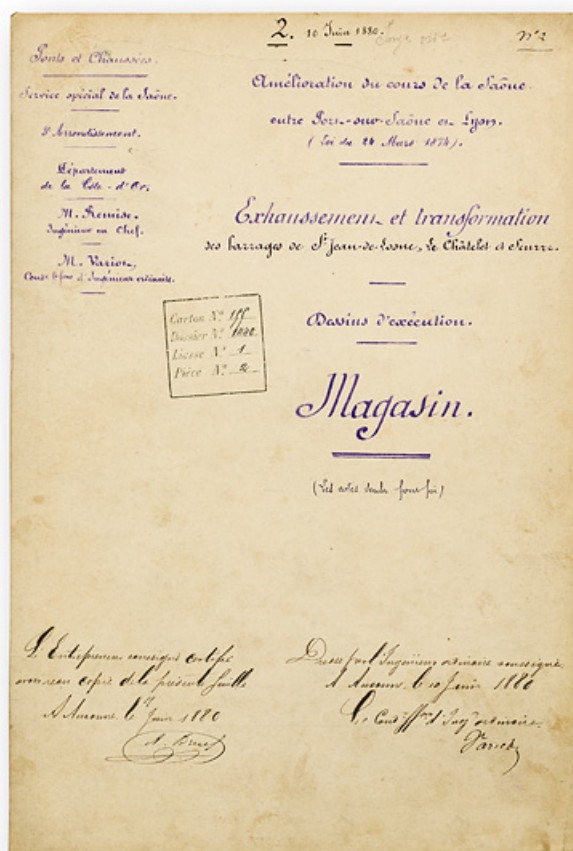 2. 10 Juin 1880.
N° 2
Ponts et Chaussées.
Service spécial de la Saône.
Arrondissement.
Département
de la Côte-d'Or.
M. Remise.
Ingénieur en Chef.
M. Variot,
Cond.r f.fons d'Ingénieur ordinaire.
Amélioration du cours de la Saône
entre Port-sur-Saône et Lyon.
(Loi du 24 Mars 1874).
Exhaussement et transformation
des barrages de St Jean-de-Losne, Le Châtelet et Seurre.
Dessins d'exécution.
Magasin.
(Les cotes seules font foi)
Carton N°
Dossier N°
Liasse N° 1
Pièce N° 2
L'Entrepreneur soussigné certifie
avoir reçu copie de la présente feuille
A Auxonne, le Juin 1880
Dressé par l'Ingénieur ordinaire soussigné
A Auxonne, le 10 Juin 1880
Le Cond.r f.fons d'Ing.r ordinaire.
Variot